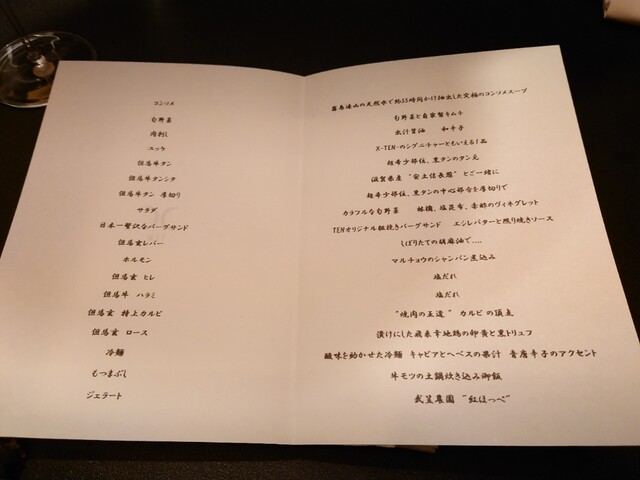 コンソメ
旬野菜
肉刺し
ユッケ
但馬牛タン
但馬牛タンシタ
但馬牛タン 厚切り
サラダ
日本一贅沢なバーグサンド
但馬玄レバー
ホルモン
但馬玄 ヒレ
但馬牛 ハラミ
但馬玄 特上カルビ
但馬玄 ロース
冷麺
もつまぶし
ジェラート
霧島連山の天然水で約55時間かけ抽出した究極のコンソメスープ
旬野菜と自家製キムチ
出汁醤油 和辛子
X-TEN-のシグニチャーともいえる1品
超希少部位、黒タンのタン元
滋賀県産 "安土信長葱" とご一緒に
超希少部位、黒タンの中心部分を厚切りで
カラフルな旬野菜 林檎、塩昆布、赤紫蘇のヴィネグレット
TENオリジナル粗挽きバーグサンド エシレバターと照り焼きソース
しぼりたての胡麻油で....
マルチョウのシャンパン煮込み
塩だれ
塩だれ
"焼肉の王道" カルビの頂点
漬けにした飛来幸地鶏の卵黄と黒トリュフ
酸味を効かせた冷麺 キャビアとヘベスの果汁 青唐辛子のアクセント
牛モツの土鍋炊き込み御飯
武笠農園 "紅ほっぺ"